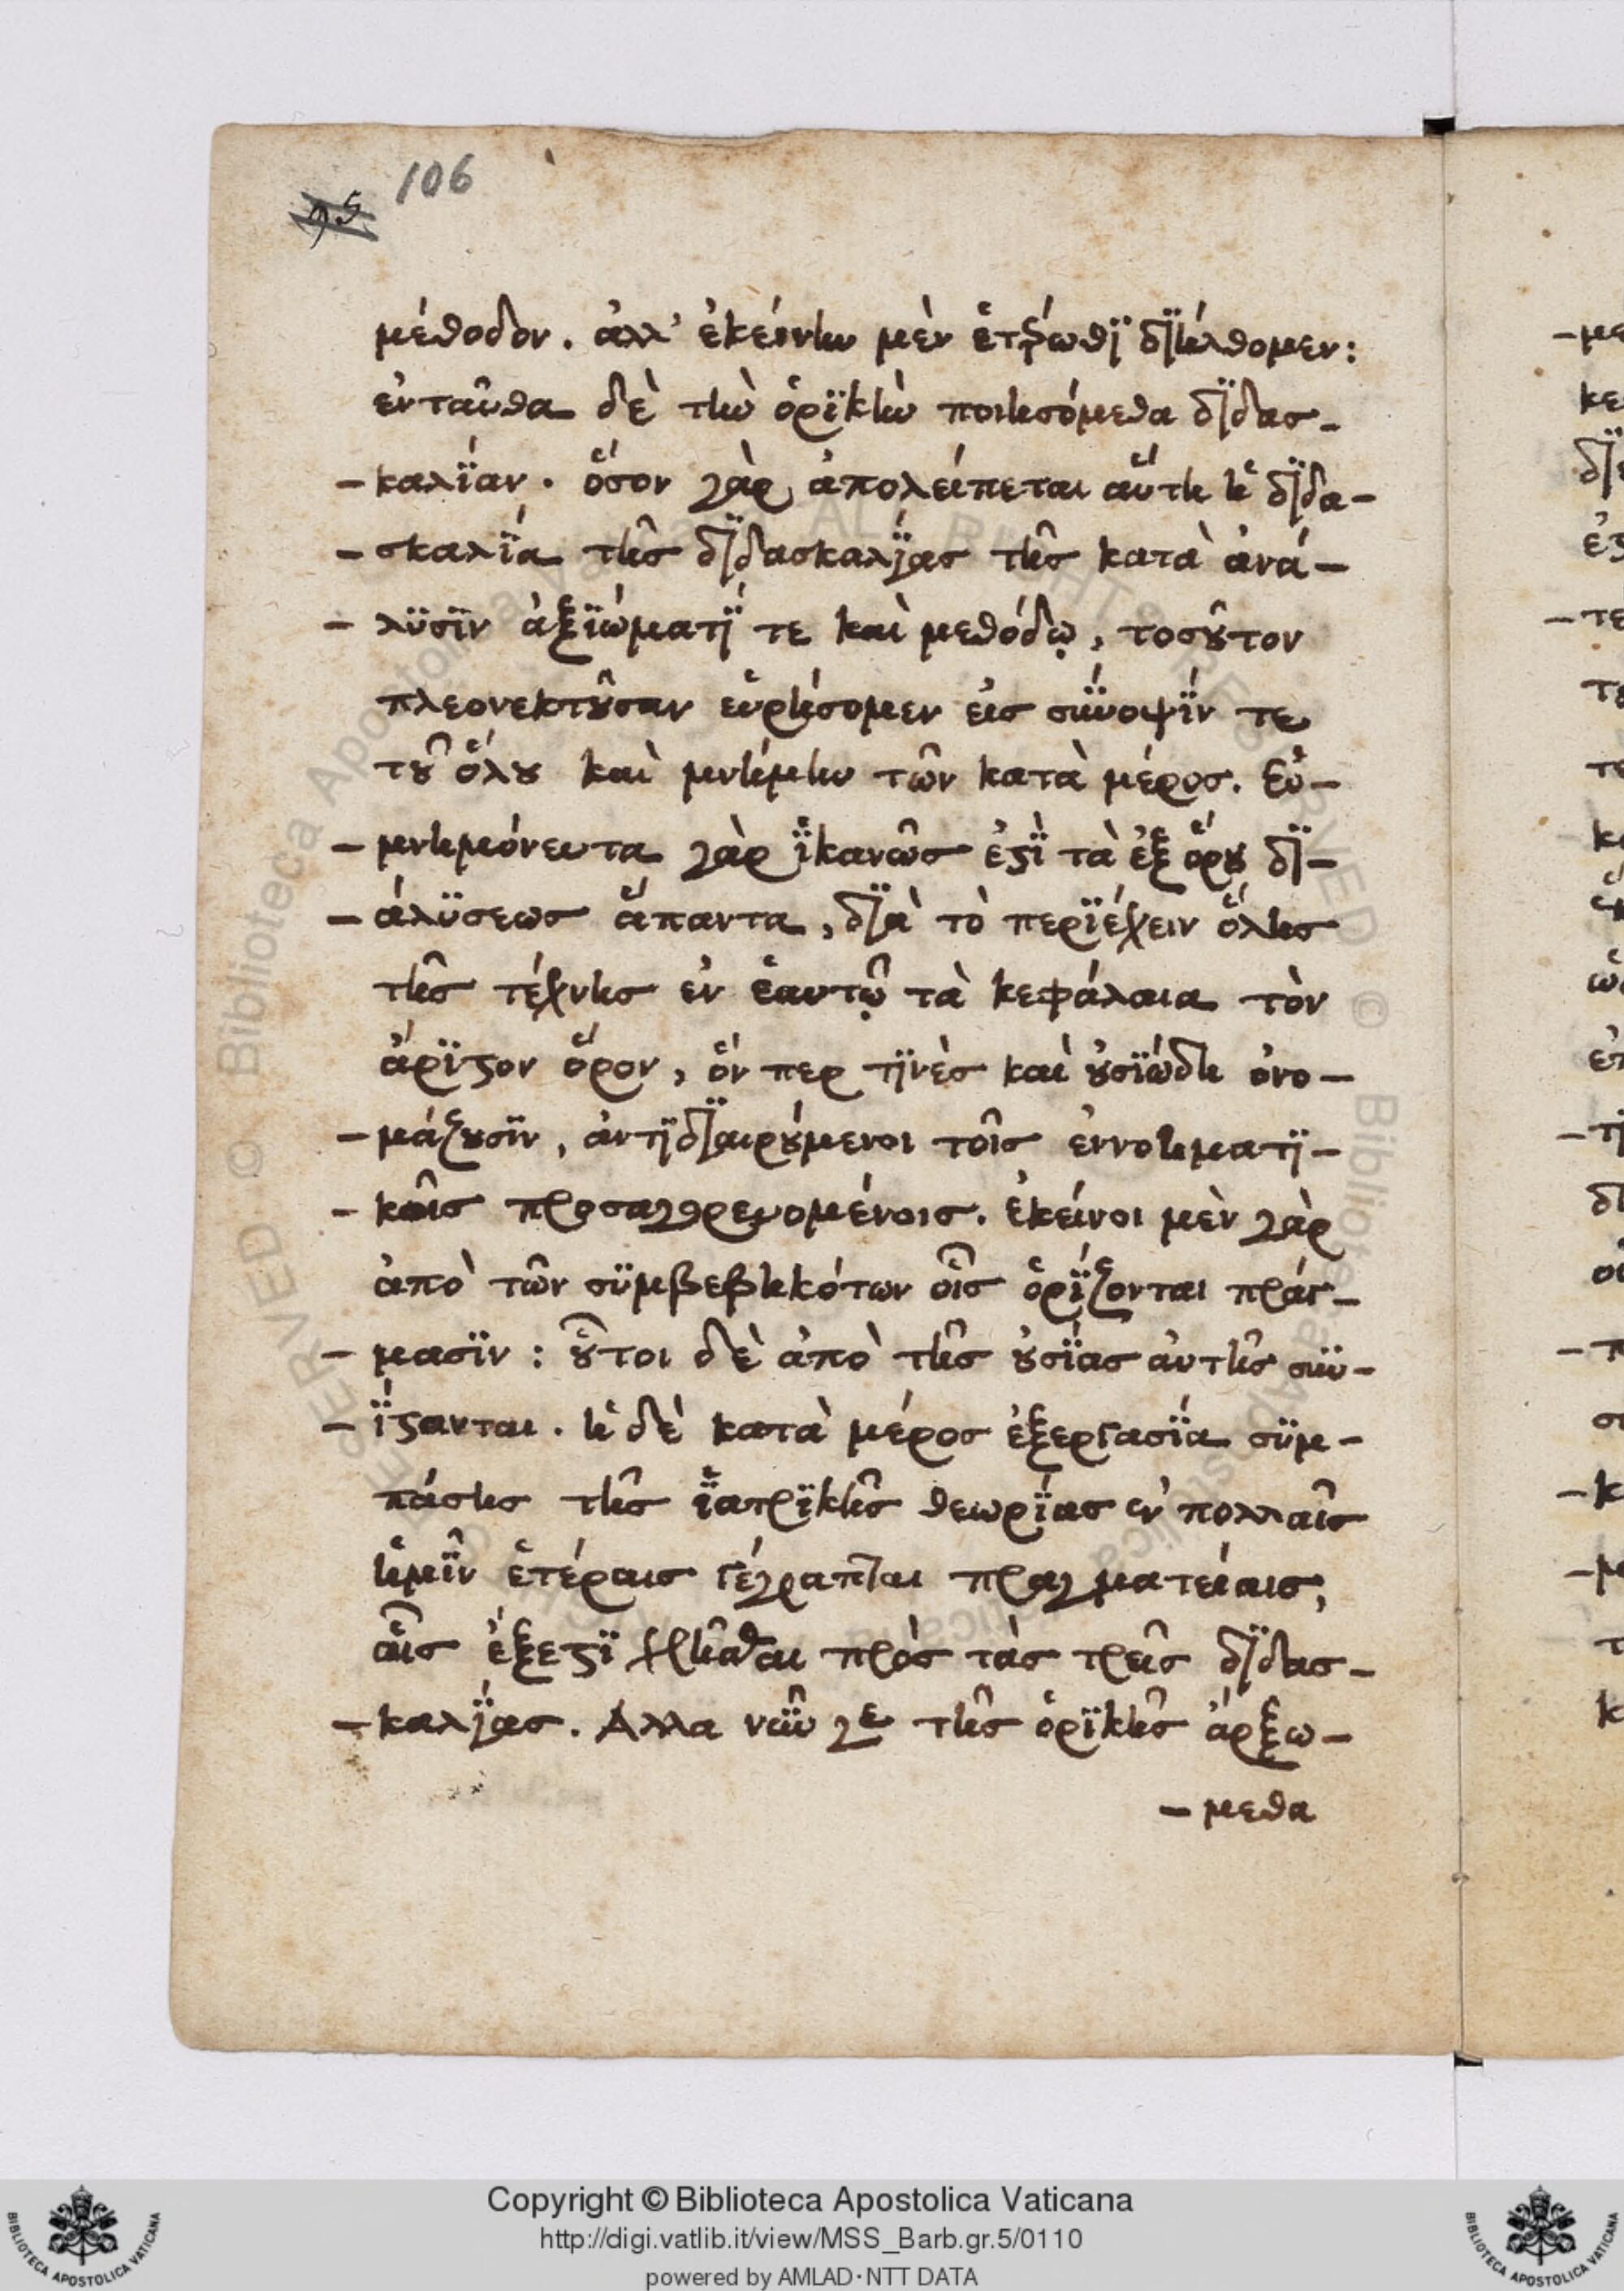 106
μέθοδον. ἀλλ' ἐκείνην μὲν ἑτέρωθϊ δϊήλθομεν:
ἐνταῦθα δὲ τὴν ὁρϊκὴν ποιησόμεθα δϊδασ-
-καλΐαν. ὅσον γὰρ ἀπολείπεται αὕτη ἡ δϊδα-
-σκαλΐα τῆς δϊδασκαλΐας τῆς κατὰ ἀνά-
-λϋσϊν ἀξϊώματΐ τε καὶ μεθόδῳ, τοσȣ͂τον
πλεονεκτȣ͂σαν εὑρήσομεν εἰς σύνοψΐν τε
τȣ͂ ὅλȣ καὶ μνήμην τῶν κατὰ μέρος. Εὐ-
-μνημόνευτα γὰρ ἱκανῶς ἐϛῒ τὰ ἐξ ὅρȣ δϊ-
-άλϋσεως ἅπαντα, δϊὰ τὸ περϊέχειν ὅλης
τῆς τέχνης ἐν ἑαυτῷ τὰ κεφάλαια τὸν
ἄρϊϛον ὅρον, ὅν περ τϊνὲς καὶ ȣ̓σϊώδη ὀνο-
-μάζȣσϊν, ἀντϊδϊαιρȣ́μενοι τοῖς ἐννοηματϊ-
-κοῖς προσαγορευομένοις. ἐκείνοι μὲν γὰρ
ἀπὸ τῶν σϋμβεβηκότων οἷς ὁρΐζονται πράγ-
-μασϊν: ȣ̔͂τοι δὲ ἀπὸ τῆς ȣ̓σΐας ἀυτῆς συν-
-ΐϛανται. ἡ δὲ κατὰ μέρος ἐξεργασΐα σϋμ-
πάσης τῆς ἰατρϊκῆς θεωρΐας ἐν πολλαῖς
ἡμῖν ἑτέραις γέγραπται πραγματείαις,
αἷς ἔξεϛϊ χρῆσθαι πρὸς τὰς τρεῖς δϊδασ-
-καλΐας. Αλλα νῦν γε τῆς ὁρϊκῆς ἀρξώ-
-μεθα
Copyright © Biblioteca Apostolica Vaticana
http://digi.vatlib.it/view/MSS_Barb.gr.5/0110
powered by AMLAD·NTT DATA